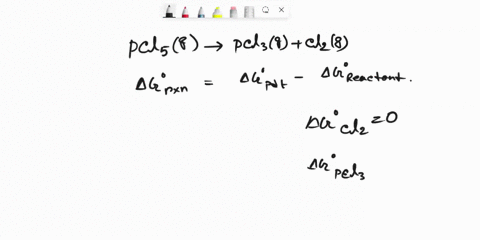 PCl₅(g) → PCl₃(g) + Cl₂(g)
ΔG°rxn = ΔG°Pdt − ΔG°Reactant.
ΔG°Cl₂ = 0
ΔG°PCl₃